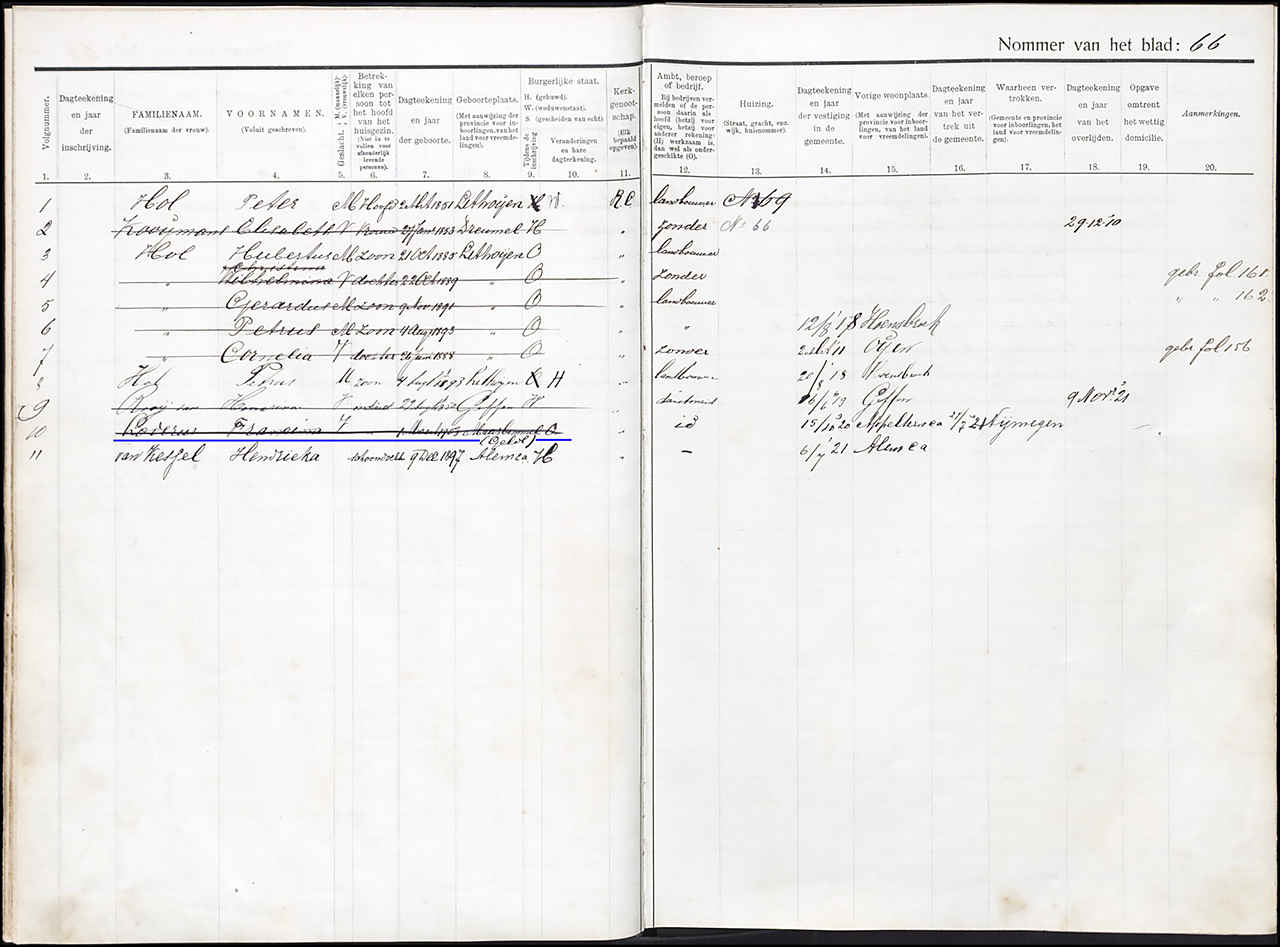 Nommer van het blad: 66
Volgnummer.
Dagteekening en jaar der inschrijving.
FAMILIENAAM. (Familienaam der vrouw).
VOORNAMEN. (Voluit geschreven).
Geslacht. M. (mannelijk). V. (vrouwelijk).
Betrekking van elken persoon tot het hoofd van het huisgezin. (Niet in te vullen voor afzonderlijk levende personen).
Dagteekening en jaar der geboorte.
Geboorteplaats. (Met aanwijzing der provincie voor inboorlingen, van het land voor vreemdelingen).
Burgerlijke staat. H. (gehuwd). W. (weduwenstaat). S. (gescheiden van echt).
Tijdens de inschrijving.
Veranderingen en hare dagteekening.
Kerkgenootschap. (Elk bepaald opgeven).
Ambt, beroep of bedrijf. Bij bedrijven vermelden of de persoon daarin als hoofd (hetzij voor eigen, hetzij voor anderer rekening) (H) werkzaam is, dan wel als ondergeschikte (O).
Huizing. (Straat, gracht, enz. wijk, huisnommer).
Dagteekening en jaar der vestiging in de gemeente.
Vorige woonplaats. (Met aanwijzing der provincie voor inboorlingen, van het land voor vreemdelingen).
Dagteekening en jaar van het vertrek uit de gemeente.
Waarheen vertrokken. (Gemeente en provincie voor inboorlingen, het land voor vreemdelingen).
Dagteekening en jaar van het overlijden.
Opgave omtrent het wettig domicilie.
Aanmerkingen.
1. 2. 3. 4. 5. 6. 7. 8. 9. 10. 11. 12. 13. 14. 15. 16. 17. 18. 19. 20.
1 Hol Peter M Hoofd 1851 Lithoijen H W. R.C landbouwer No 69
2 Kooijmans Elisabeth V vrouw 27 Jan 1853 Dreumel H " zonder No 66 29-12-10
3 Hol Hubertus M zoon 21 Oct 1885 Lithoijen O " landbouwer
Christina
4 " Wilhelmina V dochter 22 Oct 1889 O " zonder gehr fol 161
5 " Gerardus M zoon 9 Nov 1891 O " landbouwer " " 162
6 " Petrus M zoon 4 Aug 1893 " O " " 12/8 18 Hoensbroek
7 " Cornelia V dochter 26 Jan 1888 " O " zonder 11 Oijen gehr fol 156
8 Hol Petrus M zoon 4 Aug 1893 Lithoijen O H " landbouwer 20/8 18
9 Rooij van V Geffen W " dienstmeid 16/6 19 Geffen 9 Nov. 21
10 Francina V " O id 15/10 20 21 Nijmegen
(Gehol)
11 van Kessel Hendrieka schoondocht 9 Dec 1897 Alem ca H " — 6/7 21 Alem ca